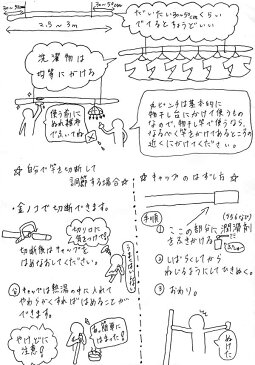 30〜35cm
30〜35cm
2.5〜3m
だいたい30〜35cmくらい
でてるとちょうどいい
洗濯物は
均等にかける
使う前に
ぬれ雑巾
でふいてね
丸ピンチは基本的に
物干し台にかけて使うもの
なので、物干し竿で使うなら、
なるべく竿をかけてあるところの
近くにかけてください。
☆自分で竿を切断して
調節する場合☆
・金ノコで切断できます。
切り口に
気をつけてネ
切断後はキャップを
はめなおしてください。
キャップは熱湯の中に入れて
やわらかくすればはめることが
できます。
やけどに
注意!
簡単に
はまった!
☆キャップのはずし方☆
手順
① ここの部分に潤滑剤
をふきかける
②しばらくしてから
ねじるようにしてひきぬく。
③おわり。
ぬけた